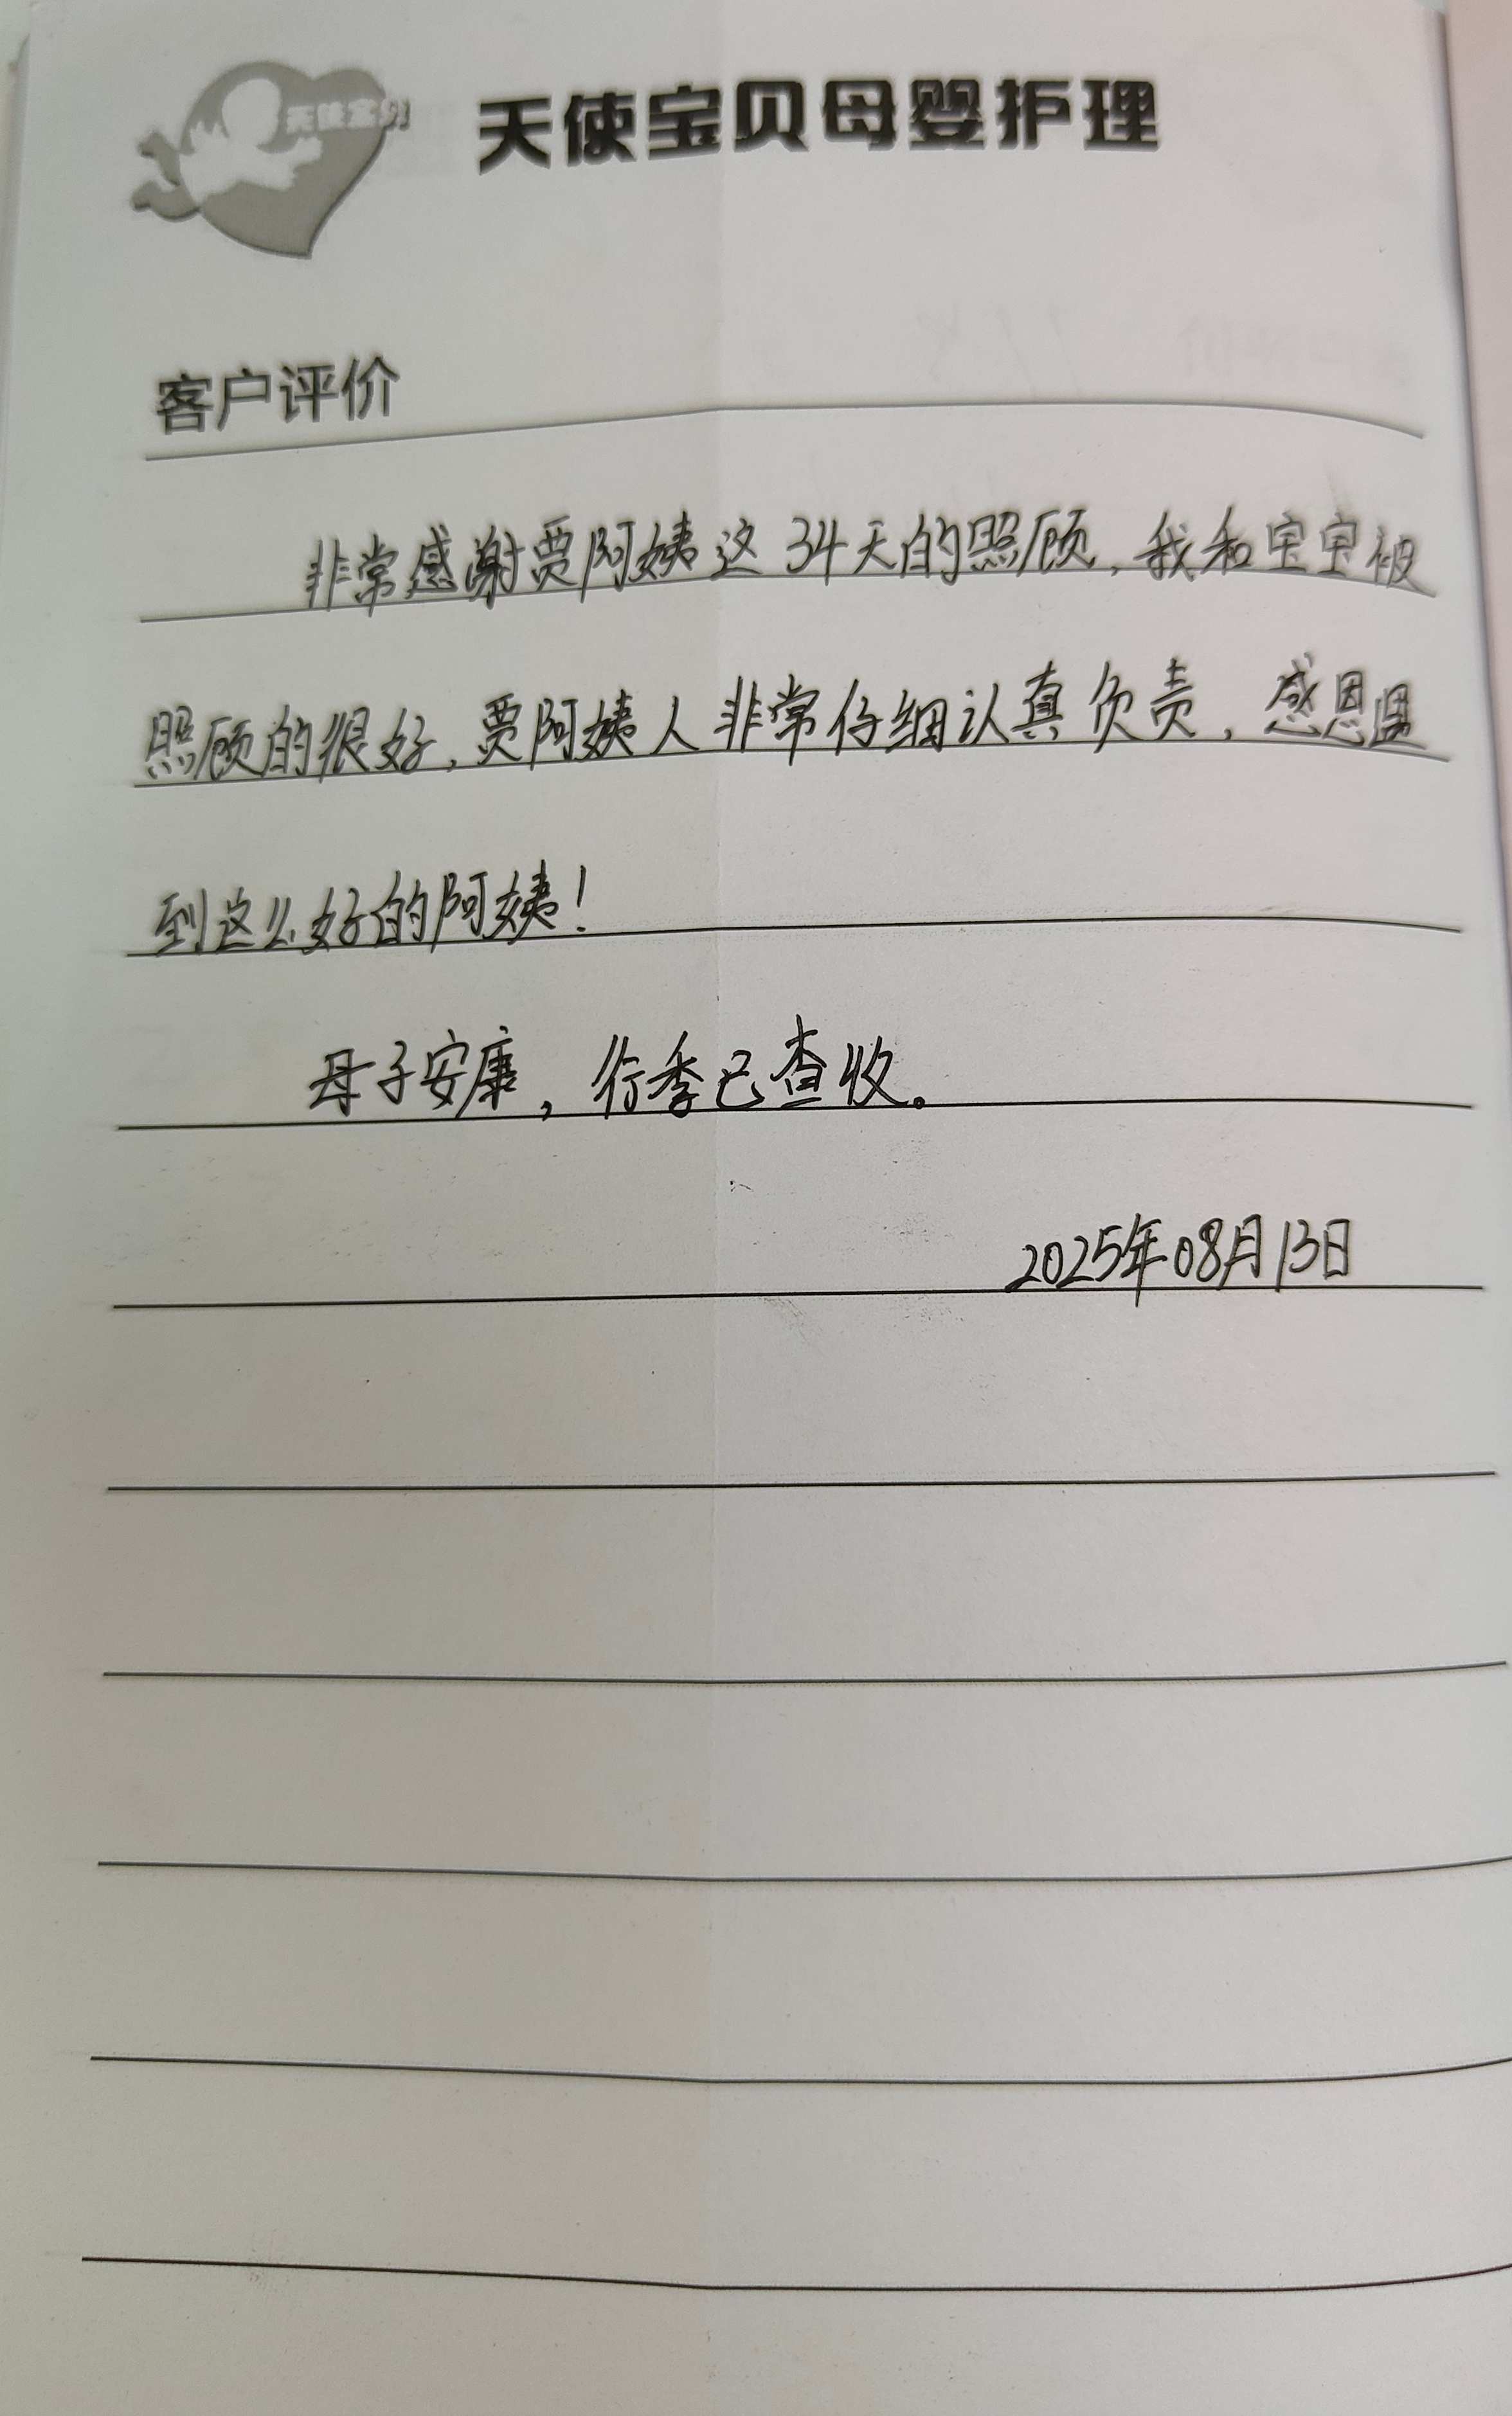 天使宝贝
天使宝贝母婴护理
客户评价
非常感谢贾阿姨这34天的照顾,我和宝宝被
照顾的很好,贾阿姨人非常仔细认真负责,感恩遇
到这么好的阿姨!
母子安康,行李已查收。
2025年08月13日